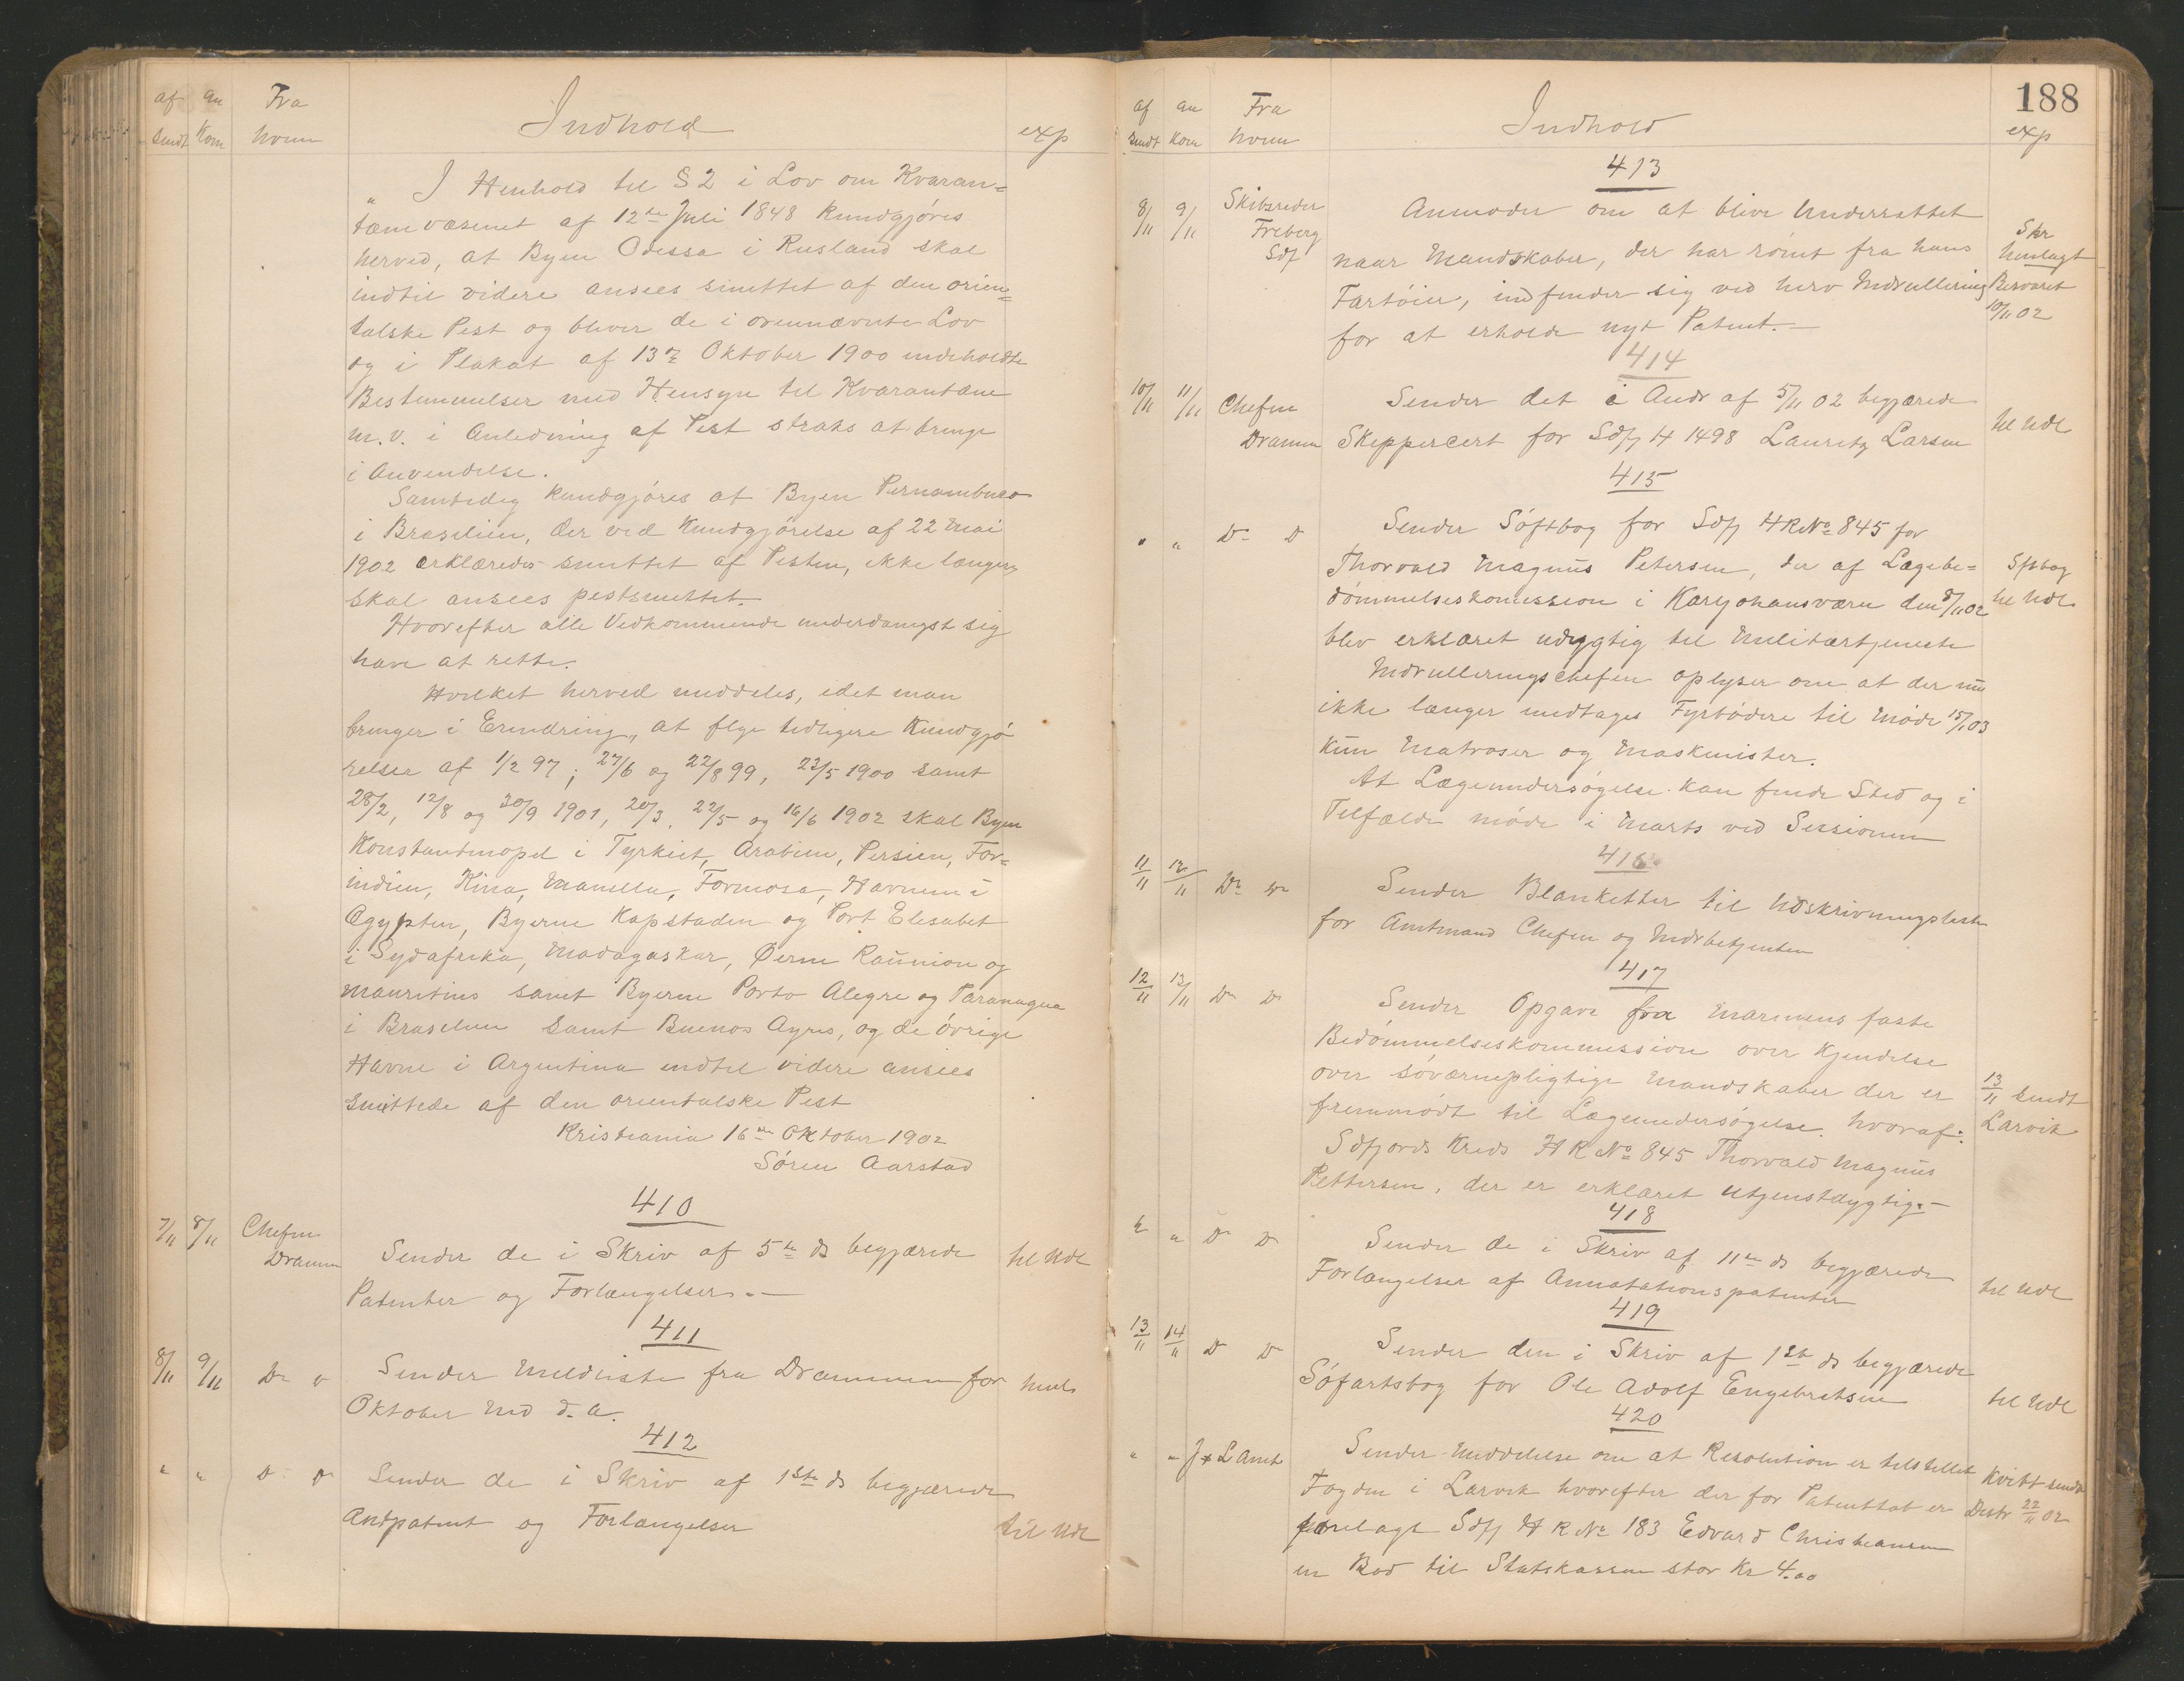 af an Fra Indhold exp
sendt Kom hvem
" I Henhold til § 2 i Lov om Kvaran=
tænevæsenet af 12te Juli 1848 kundgjöres
herved, at Byen Odessa i Rusland skal
indtil videre ansees smittet af den orien=
talske Pest og bliver de i ovennævnte Lov
og i Plakat af 13de Oktober 1900 indeholdte
Bestemmelser med Hensyn til Kvarantæne
m.v. i Anledning af Pest straks at bringe
i Anvendelse.
Samtidig kundgjöres at Byen Pernambuco
i Brasilien, der ved Kundgjörelse af 22 Mai
1902 erklæredes smittet af Pesten, ikke længer
skal ansees pestsmittet.
Hvorefter alle Vedkommende underdanigst sig
have at rette.
Hvilket herved meddeles, idet man
bringer i Erindring, at flge tidligere Kundgjö
relser af 1/2 97; 27/6 og 22/8 99, 23/5 1900 samt
28/2, 12/8 og 30/9 1901, 20/3, 22/5 og 16/6 1902 skal Byen
Konstantinopel i Tyrkiet, Arabien, Persien, For=
indien, Kina, Manilla, Formosa, Havnene i
Ægypten, Byerne Kapstaden og Port Elisabet
i Sydafrika, Madagaskar, Øerne Raunion og
Mauritius samt Byerne Porto Alegre og Paranagua
i Brasilien samt Buenos Ayres, og de övrige
Havne i Argentina indtil videre ansees
smittede af den orientalske Pest
Kristiania 16de Oktober 1902
Sören Aarstad
410
7/11 8/11 Chefen
Dramm Sender de i Skriv af 5te ds begjærede til Udl
Patenter og Forlængelser.—
411
8/11 9/11 Do o Sender Meldliste fra Drammen for henl
Oktober Md d.a.
412
" " D D Sender de i Skriv af 1ste ds begjærede
Antpatent og Forlængelser til Udl
188
af an Fra Indhold exp
sendt Kom hvem
413
8/11 9/11 Skibsreder Anmoder om at blive Underrettet Skr
Freberg
Sdf naar Mandskaber, der har römt fra hans henlagt
Fartöier, indfinder sig ved herv Indrullering Besvaret
for at erholde nyt Patent.— 10/11 02
414
10/11 11/11 Chefen Sender det i Andr af 5/11 02 begjærede
Dramm Skippercert for Sdfj H 1498 Lauritz Larsen til Udl
415
" " Do D Sender Söftbog for Sdfj HR No 845 for
Thorvald Magnus Petersen, der af Lægebe= Sfsbog
dömmelseskomission i Karljohansværn den 8/11 02 til Udl
blev erklæret udygtig til Militærtjeneste
Indrulleringschefen oplyser om at der nu
ikke længer medtages Fyrbödere til Möde 15/1 03
kun Matroser og Maskinister.
At Lægeundersögelse kan finde Sted og i
Tilfælde möde i Marts ved Sessionen
416
11/11 12/11 Do do Sender Blanketter til Udskrivningsliste
for Amtmand Chefen og Indrbetjenten
417
12/11 13/11 Do D Sender Opgave fra Marinens faste
Bedömmelseskommission over Kjendelse
over söværnepligtige Mandskaber der er 13/11 sendt
fremmödt til Lægeundersögelse. hvoraf: Larvik
Sdfjords Kreds HR No 845 Thorvald Magnus
Pettersen, der er erklæret utjenstdygtig.—
418
" " D D Sender de i Skriv af 11te ds begjærede
Forlængelser af Annotationspatenter til Udl
419
13/11 14/11 D D Sender den i Skriv af 1ste ds begjærede
Söfartsbog for Ole Adolf Engebretsen til Udl
420
" " J & L Amt Sender Meddelelse om at Resolution er tilstillet Kvitt sendt
Fogden i Larvik hvorefter der for Patenttab er Distr 22/11 02
forelagt Sdfj H R No 183 Edvard Christiansen
en Bod til Statskassen stor Kr 4.00